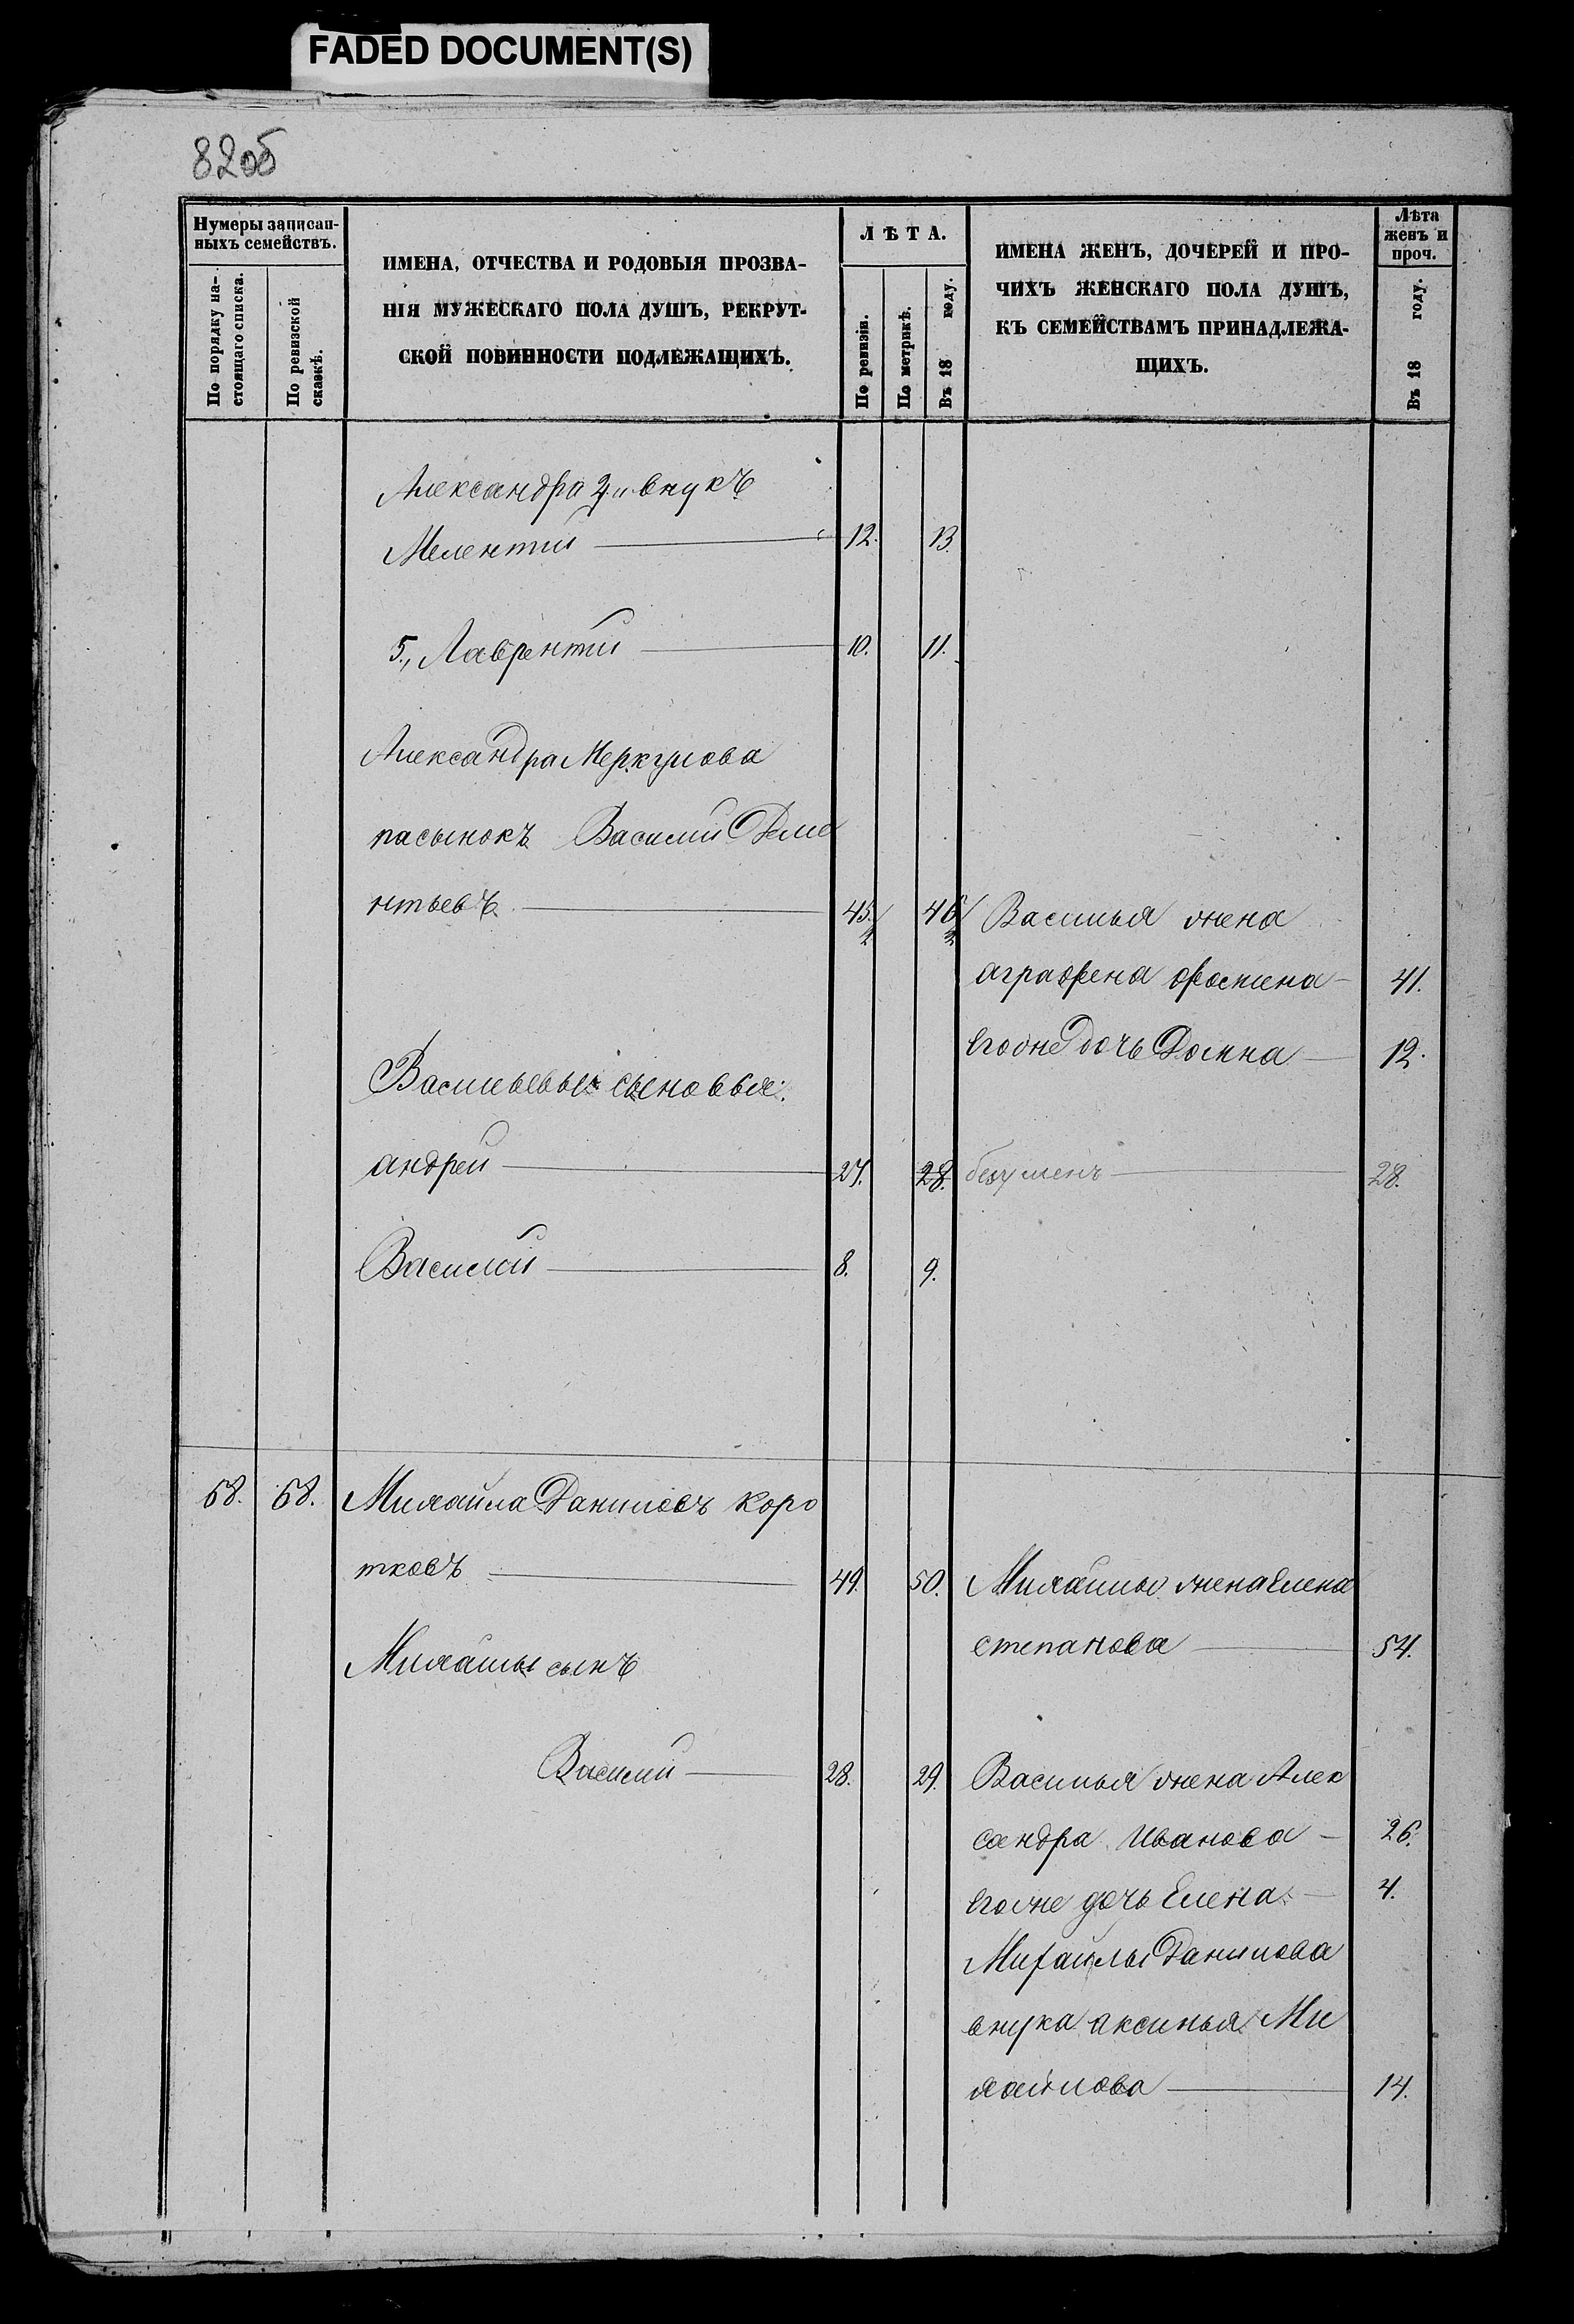 FADED DOCUMENT(S)
82об
Нумеры записан-
ныхъ семействъ.
По порядку на-
стоящаго списка.
По ревизской
сказкѣ.
ИМЕНА, ОТЧЕСТВА И РОДОВЫЯ ПРОЗВА-
НІЯ МУЖЕСКАГО ПОЛА ДУШЪ, РЕКРУТ-
СКОЙ ПОВИННОСТИ ПОДЛЕЖАЩИХЪ.
ЛѢТА.
По ревизіи.
По метрикѣ.
Въ 18 году.
ИМЕНА ЖЕНЪ, ДОЧЕРЕЙ И ПРО-
ЧИХЪ ЖЕНСКАГО ПОЛА ДУШЪ,
КЪ СЕМЕЙСТВАМЪ ПРИНАДЛЕЖА-
ЩИХЪ.
Лѣта
женъ и
проч.
Въ 18 году.
Александра 2й внукъ
Мелентий 12. 13.
5., Лаврентий 10. 11.
Александра Меркулова
пасынокъ Василий Деме
нтьевъ 45. 46. Василья жена
аграфена фомина 41.
Егоже дочь Домна 12.
Васильевы сыновья:
андрей 27. 28. 28.
Василий 8. 9.
68. 68. Михайла Даниловъ Коро
тковъ 49. 50. Михайлы жена Елена
степанова 54.
Михайлы сынъ
Василий 28. 29. Василья жена Алек
сандра Иванова 26.
Егоже дочь Елена 4.
Михайлы Данилова
внука аксинья Ми
хайлова 14.